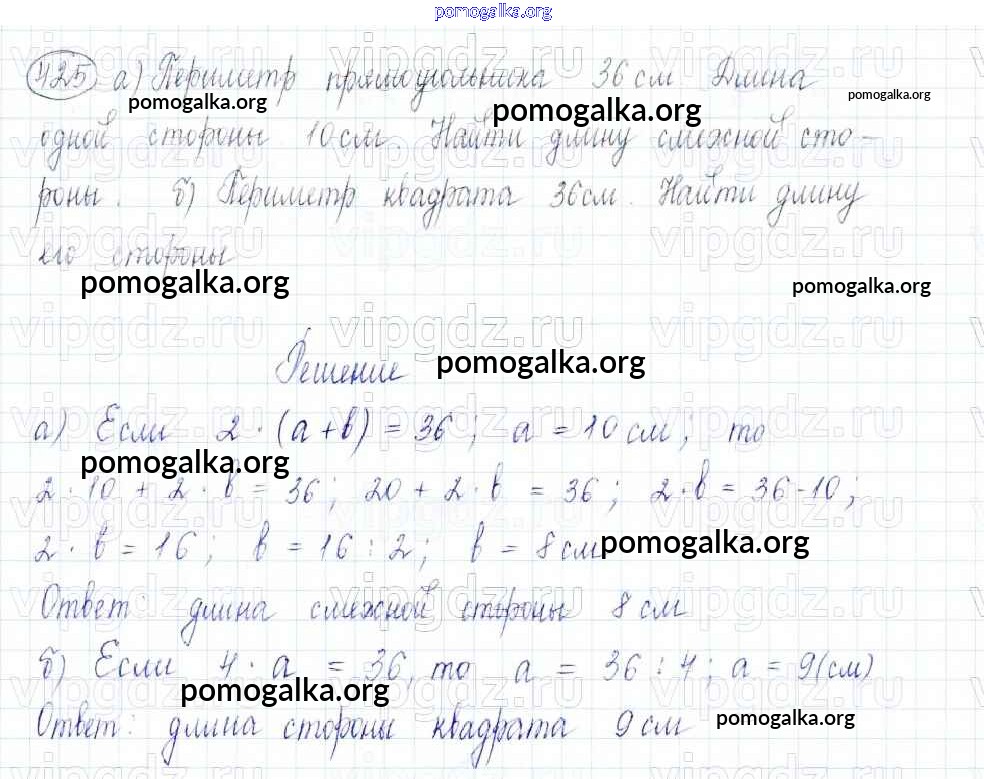 pomogalka.org
425 а) Периметр прямоугольника 36 см Длина
pomogalka.org pomogalka.org pomogalka.org
одной стороны 10 см. Найти длину смежной сто-
роны. б) Периметр квадрата 36 см. Найти длину
его стороны
pomogalka.org pomogalka.org
vipgdz.ru vipgdz.ru vipgdz.ru
Решение pomogalka.org
а) Если 2 · (a + b) = 36; a = 10 см; то
pomogalka.org
2 · 10 + 2 · b = 36; 20 + 2 · b = 36; 2 · b = 36 - 10;
2 · b = 16; b = 16 : 2; b = 8 см pomogalka.org
Ответ: длина смежной стороны 8 см
б) Если 4 · a = 36, то a = 36 : 4; a = 9 (см)
pomogalka.org
Ответ: длина стороны квадрата 9 см pomogalka.org